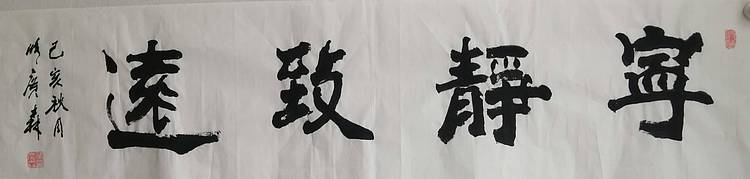 寧靜致遠
己亥秋月
廣森